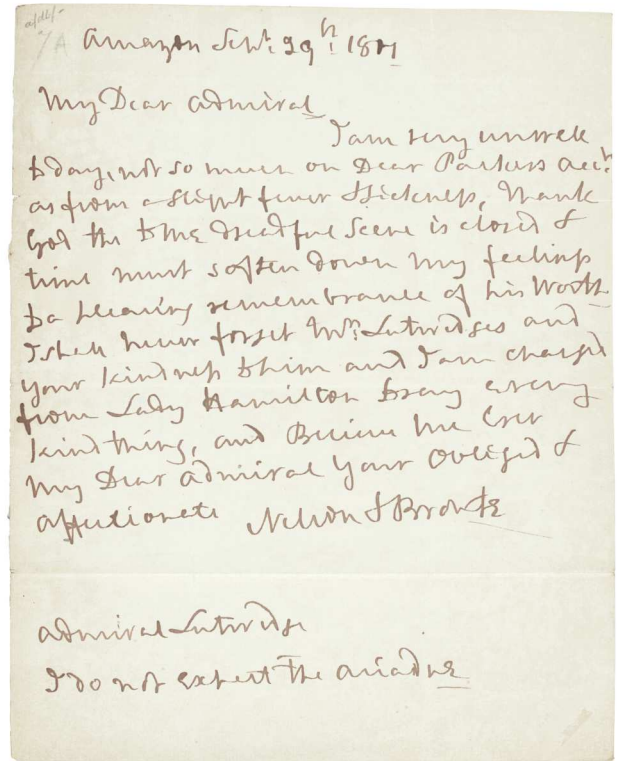 Amazon Sept: 29th. 1801
My Dear Admiral
I am very unwell
to day, not so much on Dear Parkers acct.
as from a slight fever & sickness, thank
God the to me dreadful scene is closed &
time must soften down my feelings
to a pleasing remembrance of his worth
I shall never forget Mrs. Lutwidges and
your kindness to him and I am charged
from Lady Hamilton to say every
kind thing, and Believe me Ever
My Dear Admiral Your Obliged &
affectionate Nelson & Bronte
Admiral Lutwidge
I do not expect the Ariadne